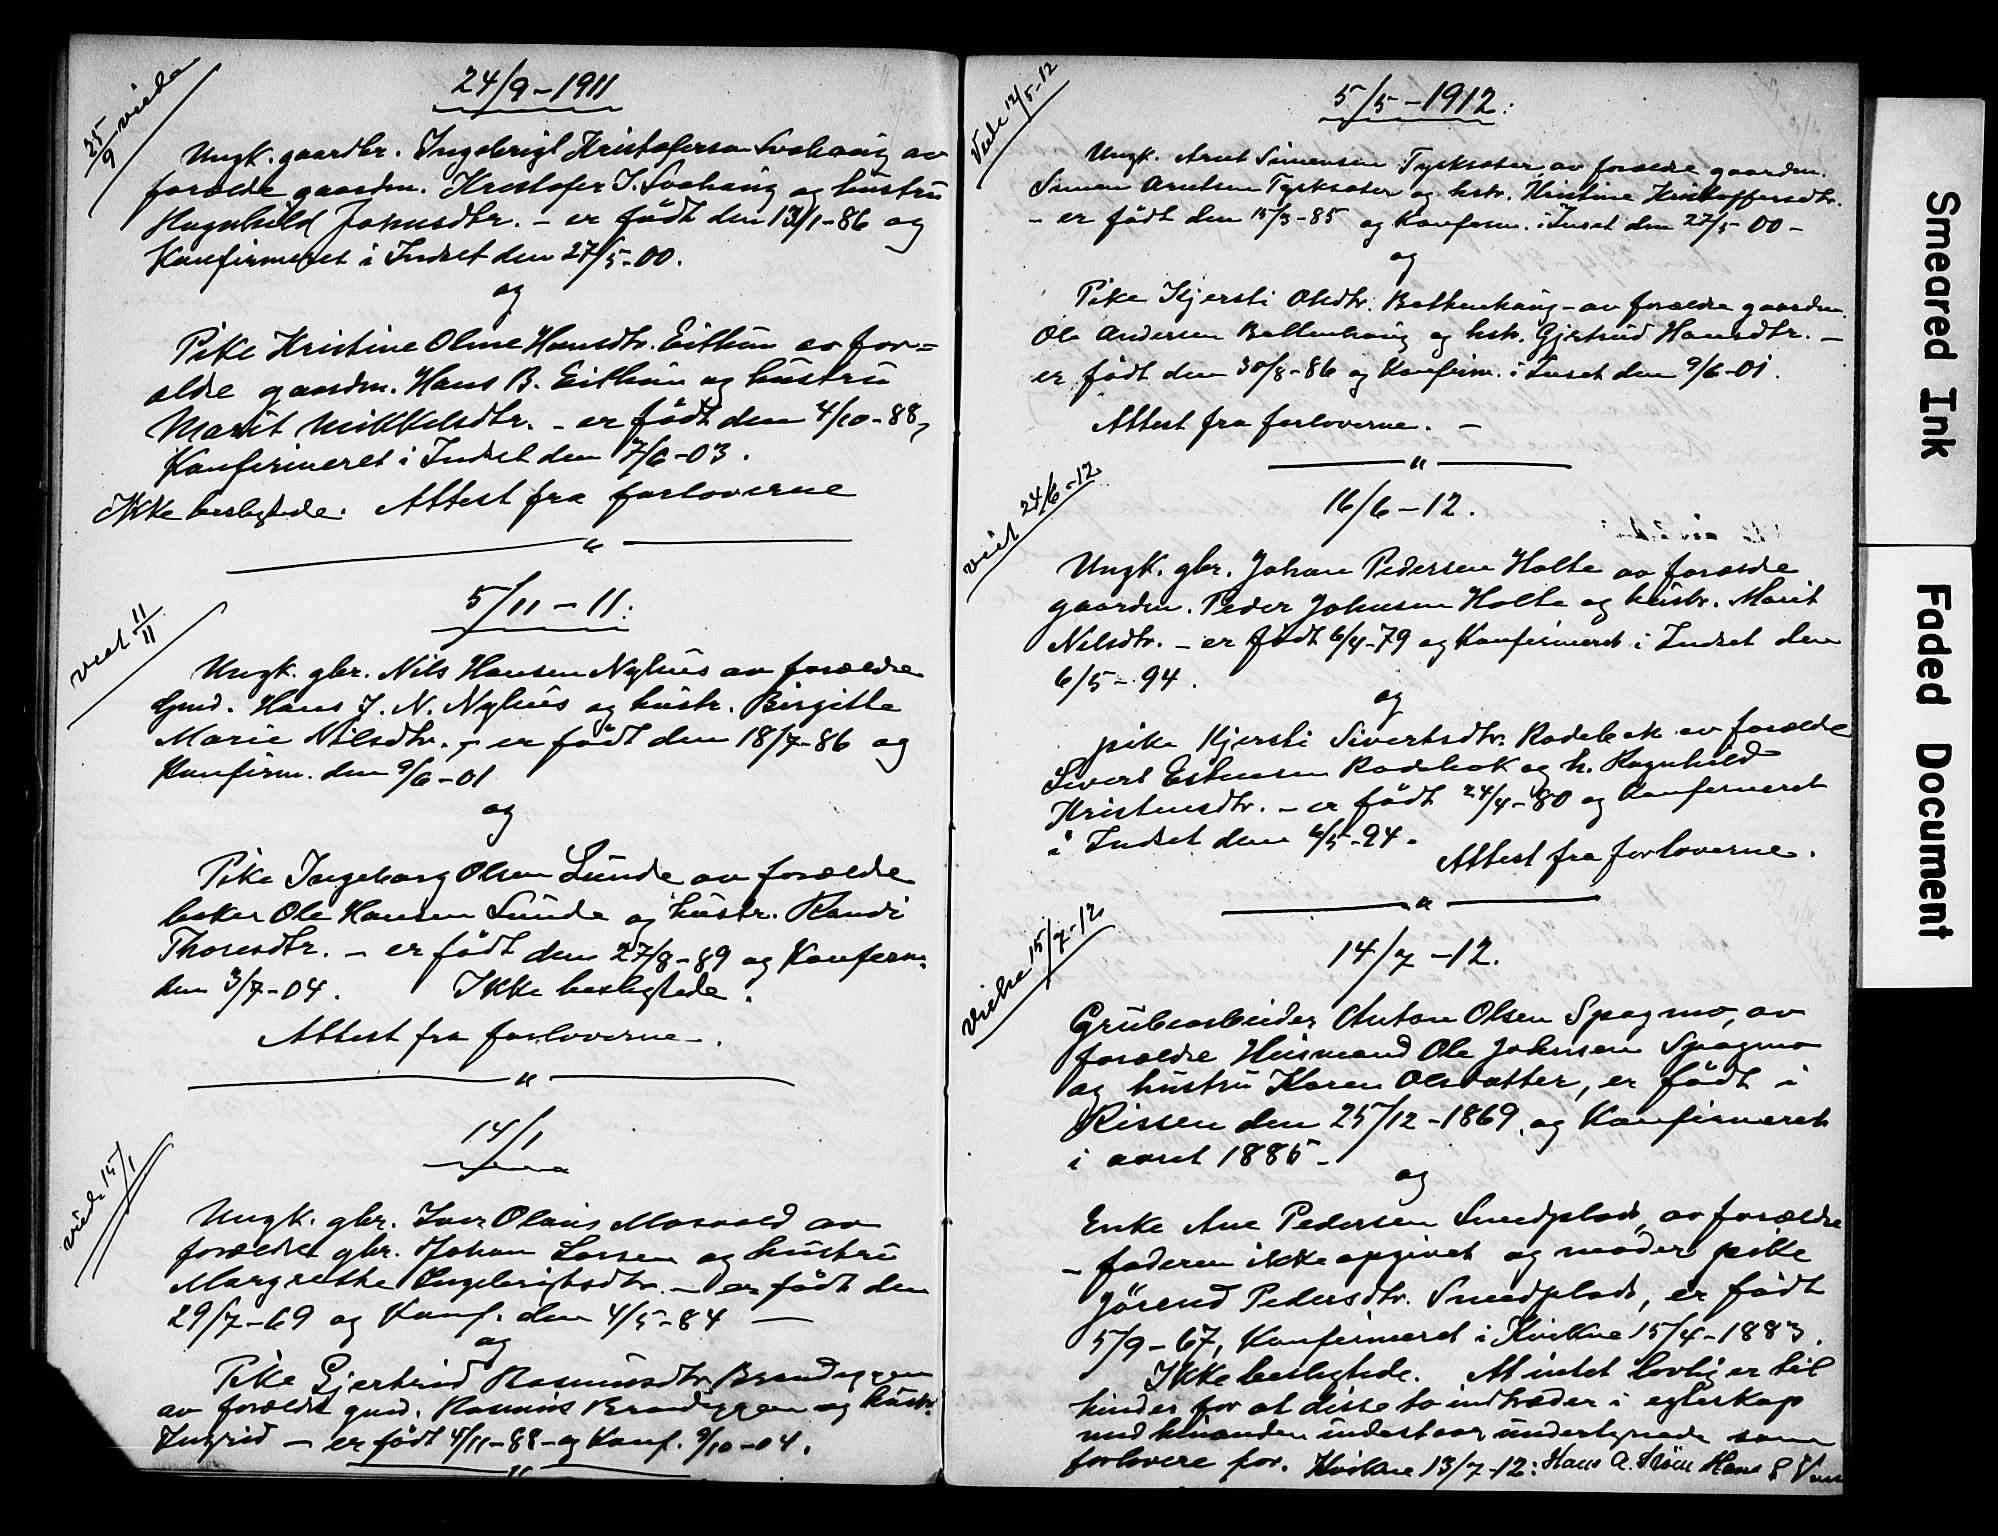 24/9-1911
25/9 viede
Ungk. gaardbr. Ingebrigt Kristofersen Svahaug av
forældre gaardm. Kristofer I. Svahaug og hustru
Ragnhild Johnsdtr. - er født den 13/1-86 og
Konfirmeret i Indset den 27/5-00.
og
Pike Kristine Oline Hansdtr. Eithun av for=
ældre gaardm. Hans B. Eithun og hustru
Marit Mikkelsdtr. - er født den 4/10-88,
Konfirmeret i Indset den 7/6-03.
Ikke beslegtede. Attest fra forloverne
"
5/11-11:
viet 11/11
Ungk. gbr. Nils Hansen Nyhus av forældre
Gmd. Hans J. N. Nyhus og hustr. Birgitte
Marie Nilsdtr. - er født den 18/7-86 og
Konfirm. den 9/6-01
og
Pike Ingeborg Olsen Lunde av forældre
baker Ole Hansen Lunde og hustr. Randi
Thoresdtr. - er født den 27/8-89 og Konferm.
den 3/7-04. Ikke beslegtede.
Attest fra forloverne.
"
14/1
viede 15/1
Ungk. gbr. Iver Olaus Mosvold av
forældre gbr. Johan Larsen og hustru
Margrethe Ingebrigtsdtr. - er født den
29/7-69 og Konf. den 4/5-84 -
og
Pike Gjertrud Rasmusdtr. Brandeggen
av forældre gmd. Rasmus Brandeggen og hustr.
Ingrid - er født 4/11-88 - og Konf. 9/10-04.
"
5/5-1912:
Viede 12/5-12
Ungk. Arnt Simensen Tysksæter av forældre gaardm.
Simen Arntsen Tysksæter og hstr. Kristine Kristoffersdtr.
- er født den 15/3-85 og Konferm. i Inset den 27/5-00-
og
Pike Kjersti Olsdtr. Bakkenhaug - av forældre gaardm.
Ole Andersen Bakkenhaug og hstr. Gjertrud Hansdtr. -
er født den 30/8-86 og Konfirm. i Inset den 9/6-01.
Attest fra forloverne. -
"
16/6-12.
viet 24/6-12.
Ungk. gbr. Johan Pedersen Holte av forældre
gaardm. Peder Johnsen Holte og hustr. Marit
Nilsdtr. - er født 6/4-79 og Konfirmeret i Indset den
6/5-94.
og
pike Kjersti Sivertsdtr. Rødebak av forældre
Sivert Estensen Rødebak og h. Ragnhild
Kristensdtr. - er født 24/4-80 og Konfirmeret
i Indset den 6/5-94.
Attest fra forloverne.
"
14/7-12.
viede 15/7-12.
Grubearbeider Anton Olsen Spagmo, av
forældre Husmand Ole Johnsen Spagmo
og hustru Karen Olsdatter, er født i
Rissen den 25/12-1869, og Konfirmeret
i aaret 1885-
og
Enke Ane Pedersen Smedplads, av forældre
- faderen ikke opgivet og moder pike
Jørend Pedersdtr. Smedplads, er født
5/9-67, Konfirmeret i Kvikne 15/4-1883.
Ikke beslegtede. At intet lovlig er til
hinder for at disse to indtræder i egteskap
med hinanden indestaar undertegnede som
forlovere for. Kvikne 13/7-12: Hans A. Strøm Hans